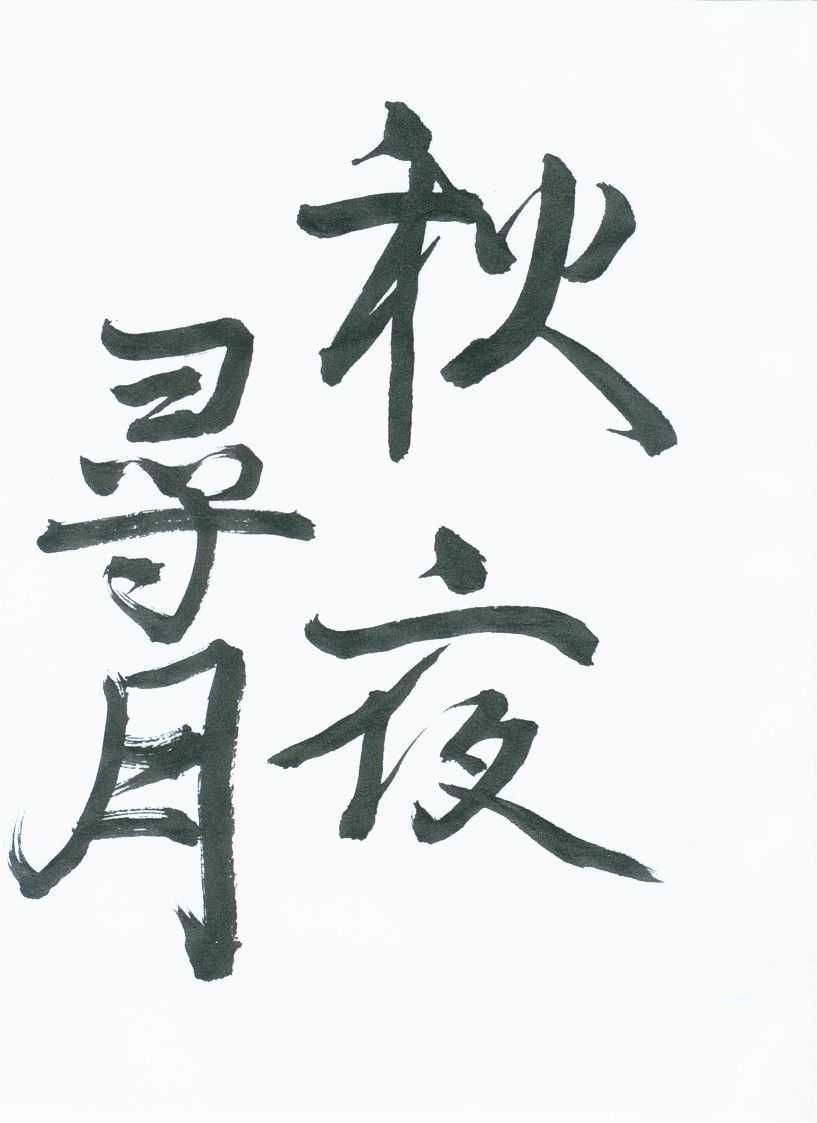 秋夜
尋月